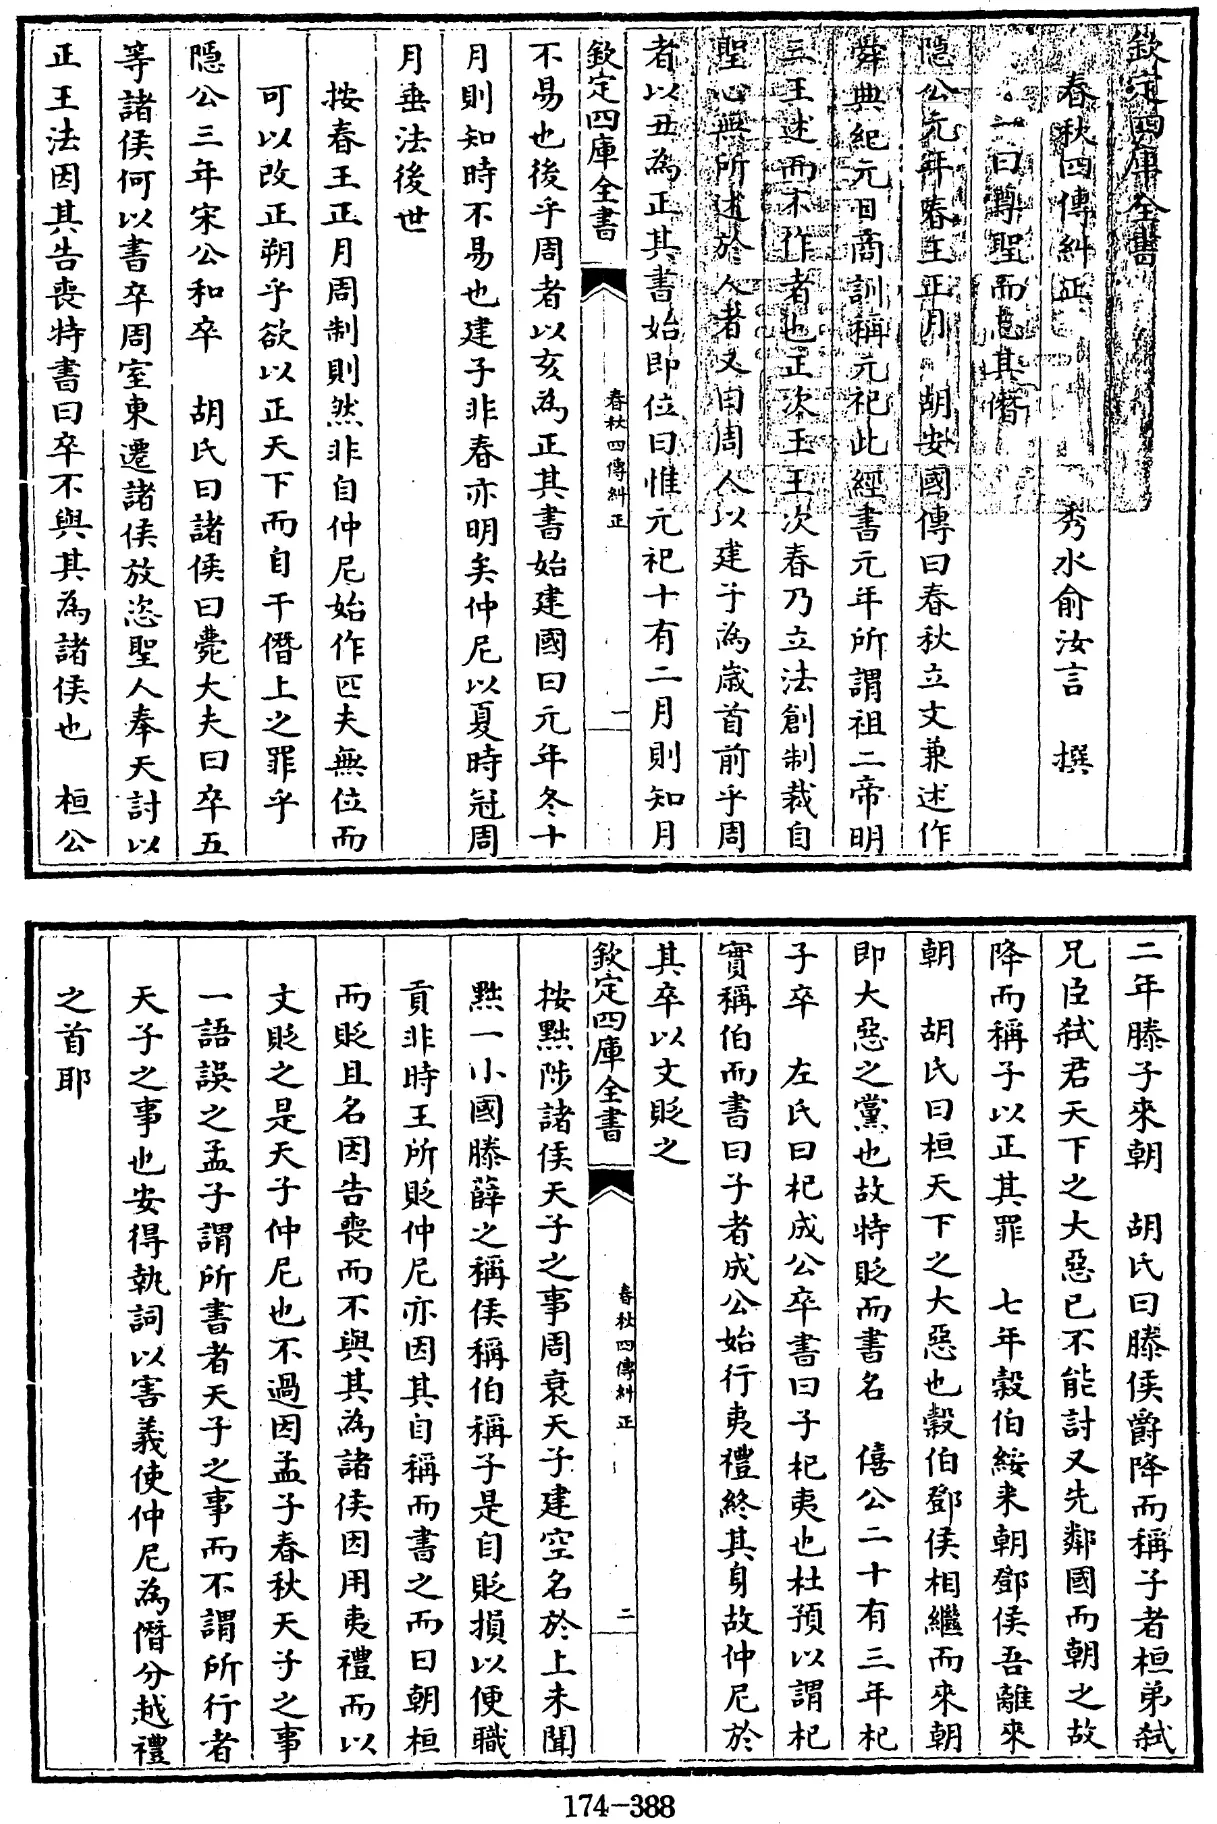 欽定四庫全書
春秋四傳糾正 秀水俞汝言 撰
一曰尊聖而忘其僭
隱公元年春王正月 胡安國傳曰春秋立文兼述作
舜典紀元日商訓稱元祀此經書元年所謂祖二帝明
三王述而不作者也正次王王次春乃立法創制裁自
聖心無所述於人者又曰周人以建子為歲首前乎周
者以丑為正其書始即位曰惟元祀十有二月則知月
欽定四庫全書
春秋四傳糾正
一
不易也後乎周者以亥為正其書始建國曰元年冬十
月則知時不易也建子非春亦明矣仲尼以夏時冠周
月垂法後世
按春王正月周制則然非自仲尼始作匹夫無位而
可以改正朔乎欲以正天下而自干僭上之罪乎
隱公三年宋公和卒 胡氏曰諸侯曰薨大夫曰卒五
等諸侯何以書卒周室東遷諸侯放恣聖人奉天討以
正王法因其告喪特書曰卒不與其為諸侯也 桓公
二年滕子來朝 胡氏曰滕侯爵降而稱子者桓弟弒
兄臣弒君天下之大惡已不能討又先鄰國而朝之故
降而稱子以正其罪 七年穀伯綏來朝鄧侯吾離來
朝 胡氏曰桓天下之大惡也穀伯鄧侯相繼而來朝
即大惡之黨也故特貶而書名 僖公二十有三年杞
子卒 左氏曰杞成公卒書曰子杞夷也杜預以謂杞
實稱伯而書曰子者成公始行夷禮終其身故仲尼於
其卒以文貶之
欽定四庫全書
春秋四傳糾正
二
按黜陟諸侯天子之事周衰天子建空名於上未聞
黜一小國滕薛之稱侯稱伯稱子是自貶損以便職
貢非時王所貶仲尼亦因其自稱而書之而曰朝桓
而貶且名因告喪而不與其為諸侯因用夷禮而以
文貶之是天子仲尼也不過因孟子春秋天子之事
一語誤之孟子謂所書者天子之事而不謂所行者
天子之事也安得執詞以害義使仲尼為僭分越禮
之首耶
174-388